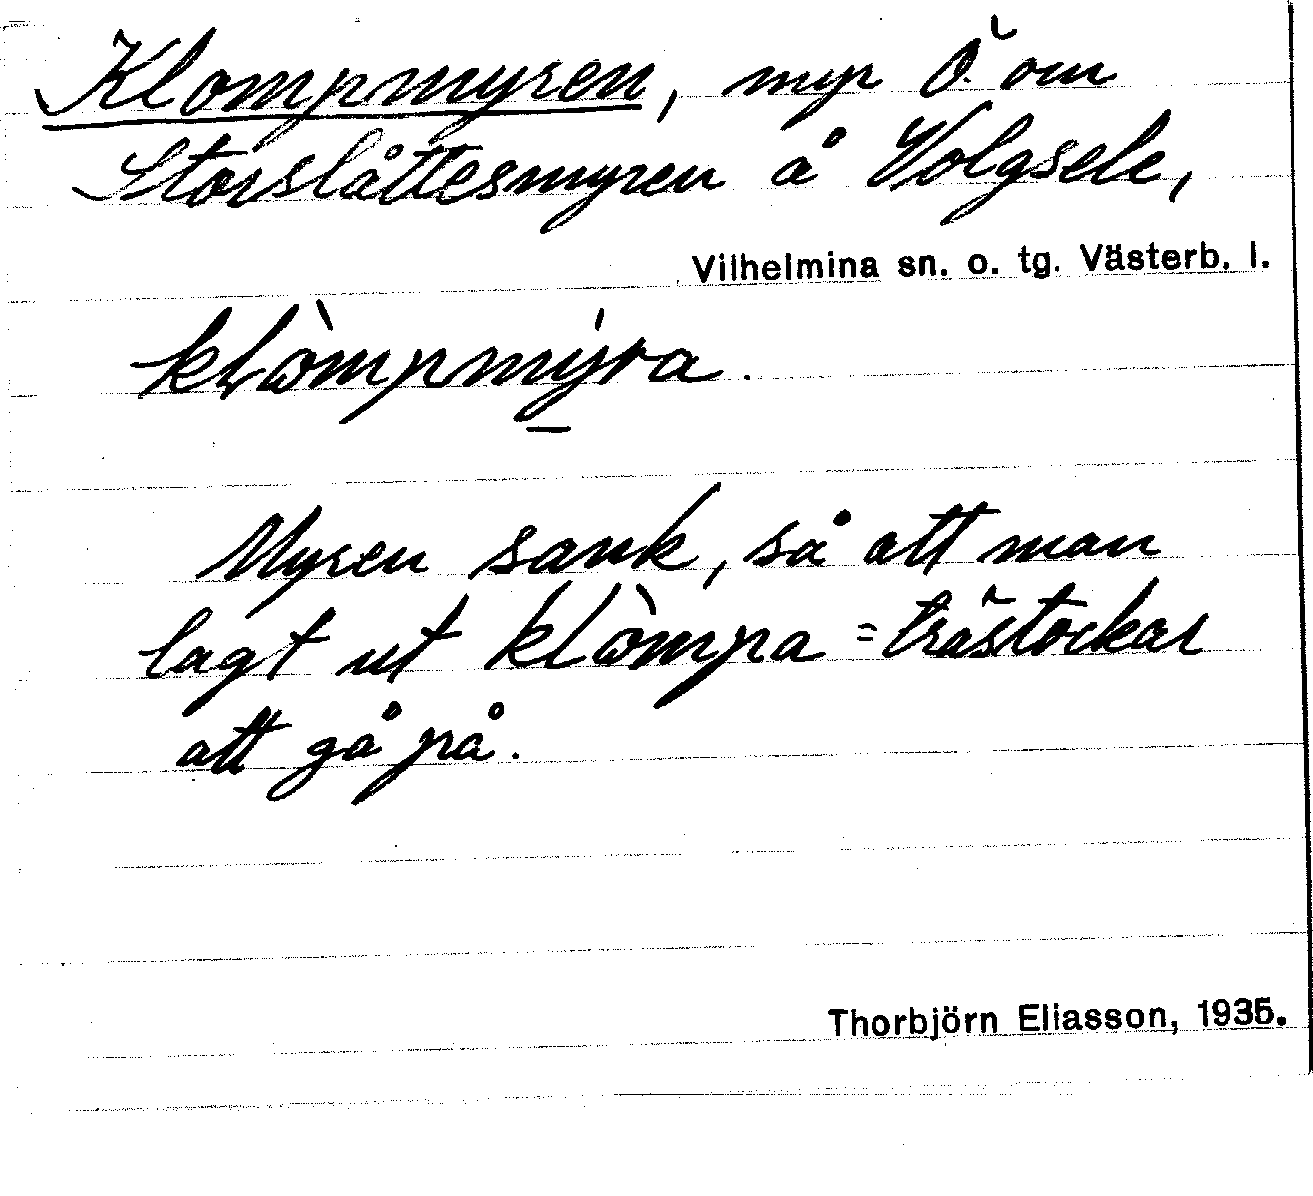 Klompmyren, myr Ö om
Storslåttesmyren å Volgsele,
Vilhelmina sn. o. tg. Västerb. l.
klòmpmýra.
Myren sank, så att man
lagt ut klòmpa = trästockar
att gå på.
Thorbjörn Eliasson, 1935.